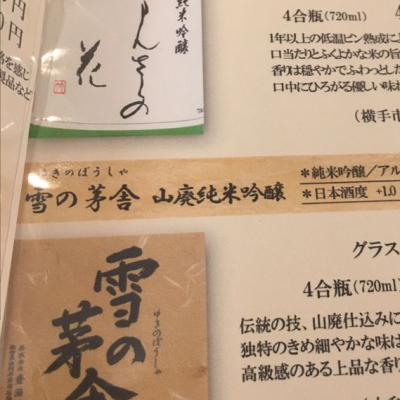 円
0円
格を感じ
製品など
純米吟醸
まんさくの
花
4合瓶(720ml)
1年以上の低温ビン熟成に
口当たりとふくよかな米の旨
香りは穏やかでふわっとした
口中にひろがる優しい味わ
(横手市
きのぼうしゃ
雪の茅舎 山廃純米吟醸
*純米吟醸/アル
*日本酒度 +1.0
グラス
4合瓶(720ml)
伝統の技、山廃仕込みに
独特のきめ細やかな味は
高級感のある上品な香り
雪の
茅舎
ゆきのぼうしゃ